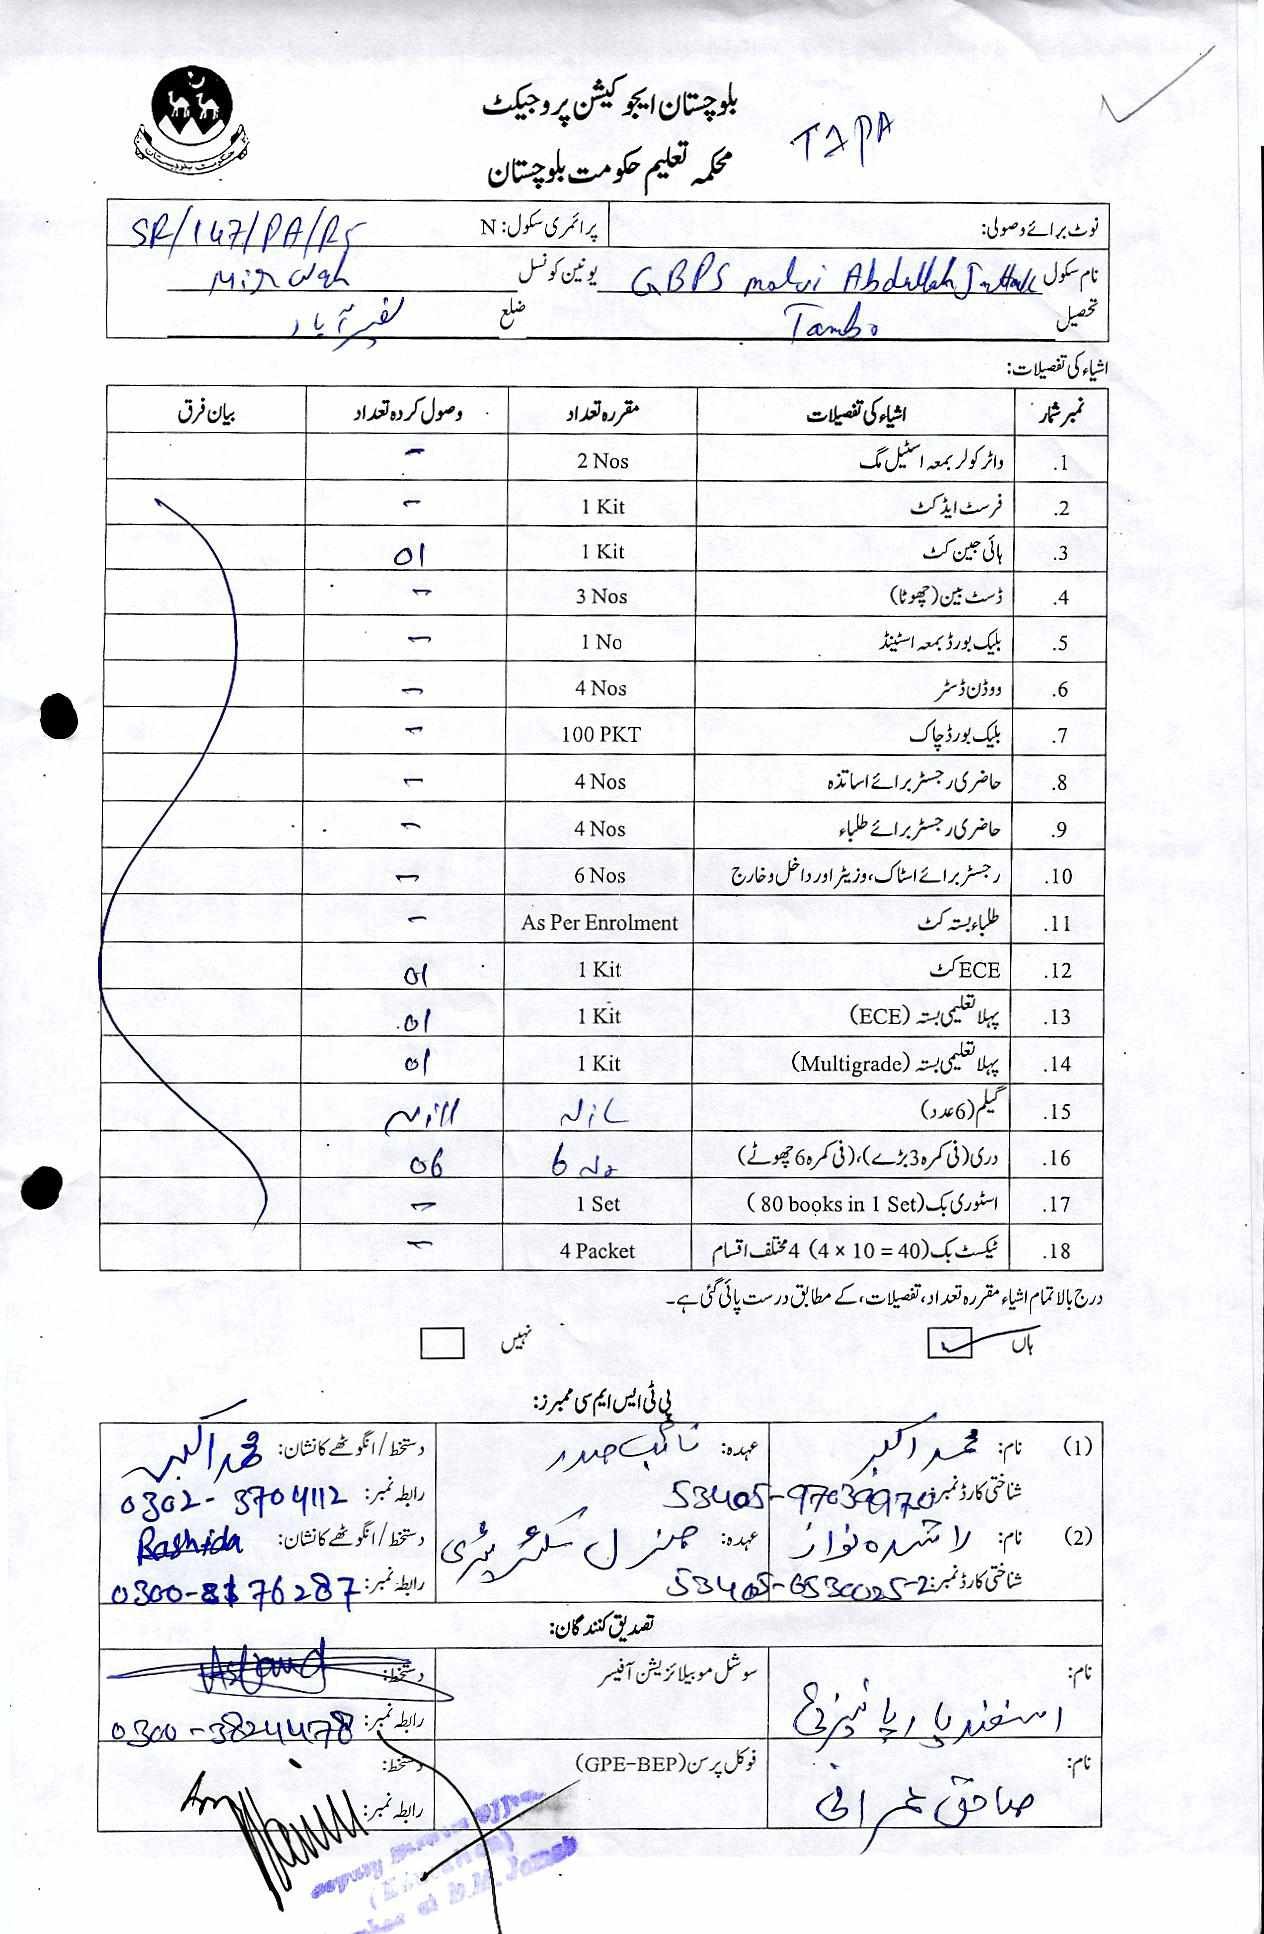 بلوچستان ایجوکیشن پروجیکٹ
محکمہ تعلیم حکومت بلوچستان
TAPA
حکومت بلوچستان
نوٹ برائے وصولی: پرائمری سکول: N SR/147/PA/R5
نام سکول GBPS molvi Abdullah Jattak یونین کونسل Mir wah
تحصیل Tambo ضلع نصیر آباد
اشیاء کی تفصیلات:
نمبر شمار اشیاء کی تفصیلات مقررہ تعداد وصول کردہ تعداد بیان فرق
.1 واٹر کولر بمعہ اسٹیل مگ 2 Nos -
.2 فرسٹ ایڈ کٹ 1 Kit -
.3 ہائی جین کٹ 1 Kit 01
.4 ڈسٹ بین (چھوٹا) 3 Nos -
.5 بلیک بورڈ بمعہ اسٹینڈ 1 No -
.6 ووڈن ڈسٹر 4 Nos -
.7 بلیک بورڈ چاک 100 PKT -
.8 حاضری رجسٹر برائے اساتذہ 4 Nos -
.9 حاضری رجسٹر برائے طلباء 4 Nos -
.10 رجسٹر برائے اسٹاک، وزیٹر اور داخل و خارج 6 Nos -
.11 طلباء بستہ کٹ As Per Enrolment -
.12 ECE کٹ 1 Kit 01
.13 پہلا تعلیمی بستہ (ECE) 1 Kit 01
.14 پہلا تعلیمی بستہ (Multigrade) 1 Kit 01
.15 گیلم (6 عدد) Nil Nill
.16 دری (فی کمرہ 3 بڑے)، (فی کمرہ 6 چھوٹے) 6 No 06
.17 اسٹوری بک (80 books in 1 Set) 1 Set -
.18 ٹیکسٹ بک (4 × 10 = 40) 4 مختلف اقسام 4 Packet -
درج بالا تمام اشیاء مقررہ تعداد، تفصیلات، کے مطابق درست پائی گئی ہے۔
ہاں ✓ نہیں
پی ٹی ایس ایم سی ممبرز:
(1) نام: محمد اکبر عہدہ: نائب صدر دستخط / انگوٹھے کا نشان: محمد اکبر
شناختی کارڈ نمبر: رابطہ نمبر: 0302-3704112
(2) نام: راشدہ نواز عہدہ: جنرل سکیٹریٹری دستخط / انگوٹھے کا نشان: Rashida
شناختی کارڈ نمبر: 53405-6530025-2 رابطہ نمبر: 0300-8176287
تصدیق کنندگان:
نام: اسفندیار سوشل موبیلائزیشن آفیسر دستخط:
رابطہ نمبر: 0300-3824478
نام: صادق عمرانی فوکل پرسن (GPE-BEP) دستخط:
رابطہ نمبر: